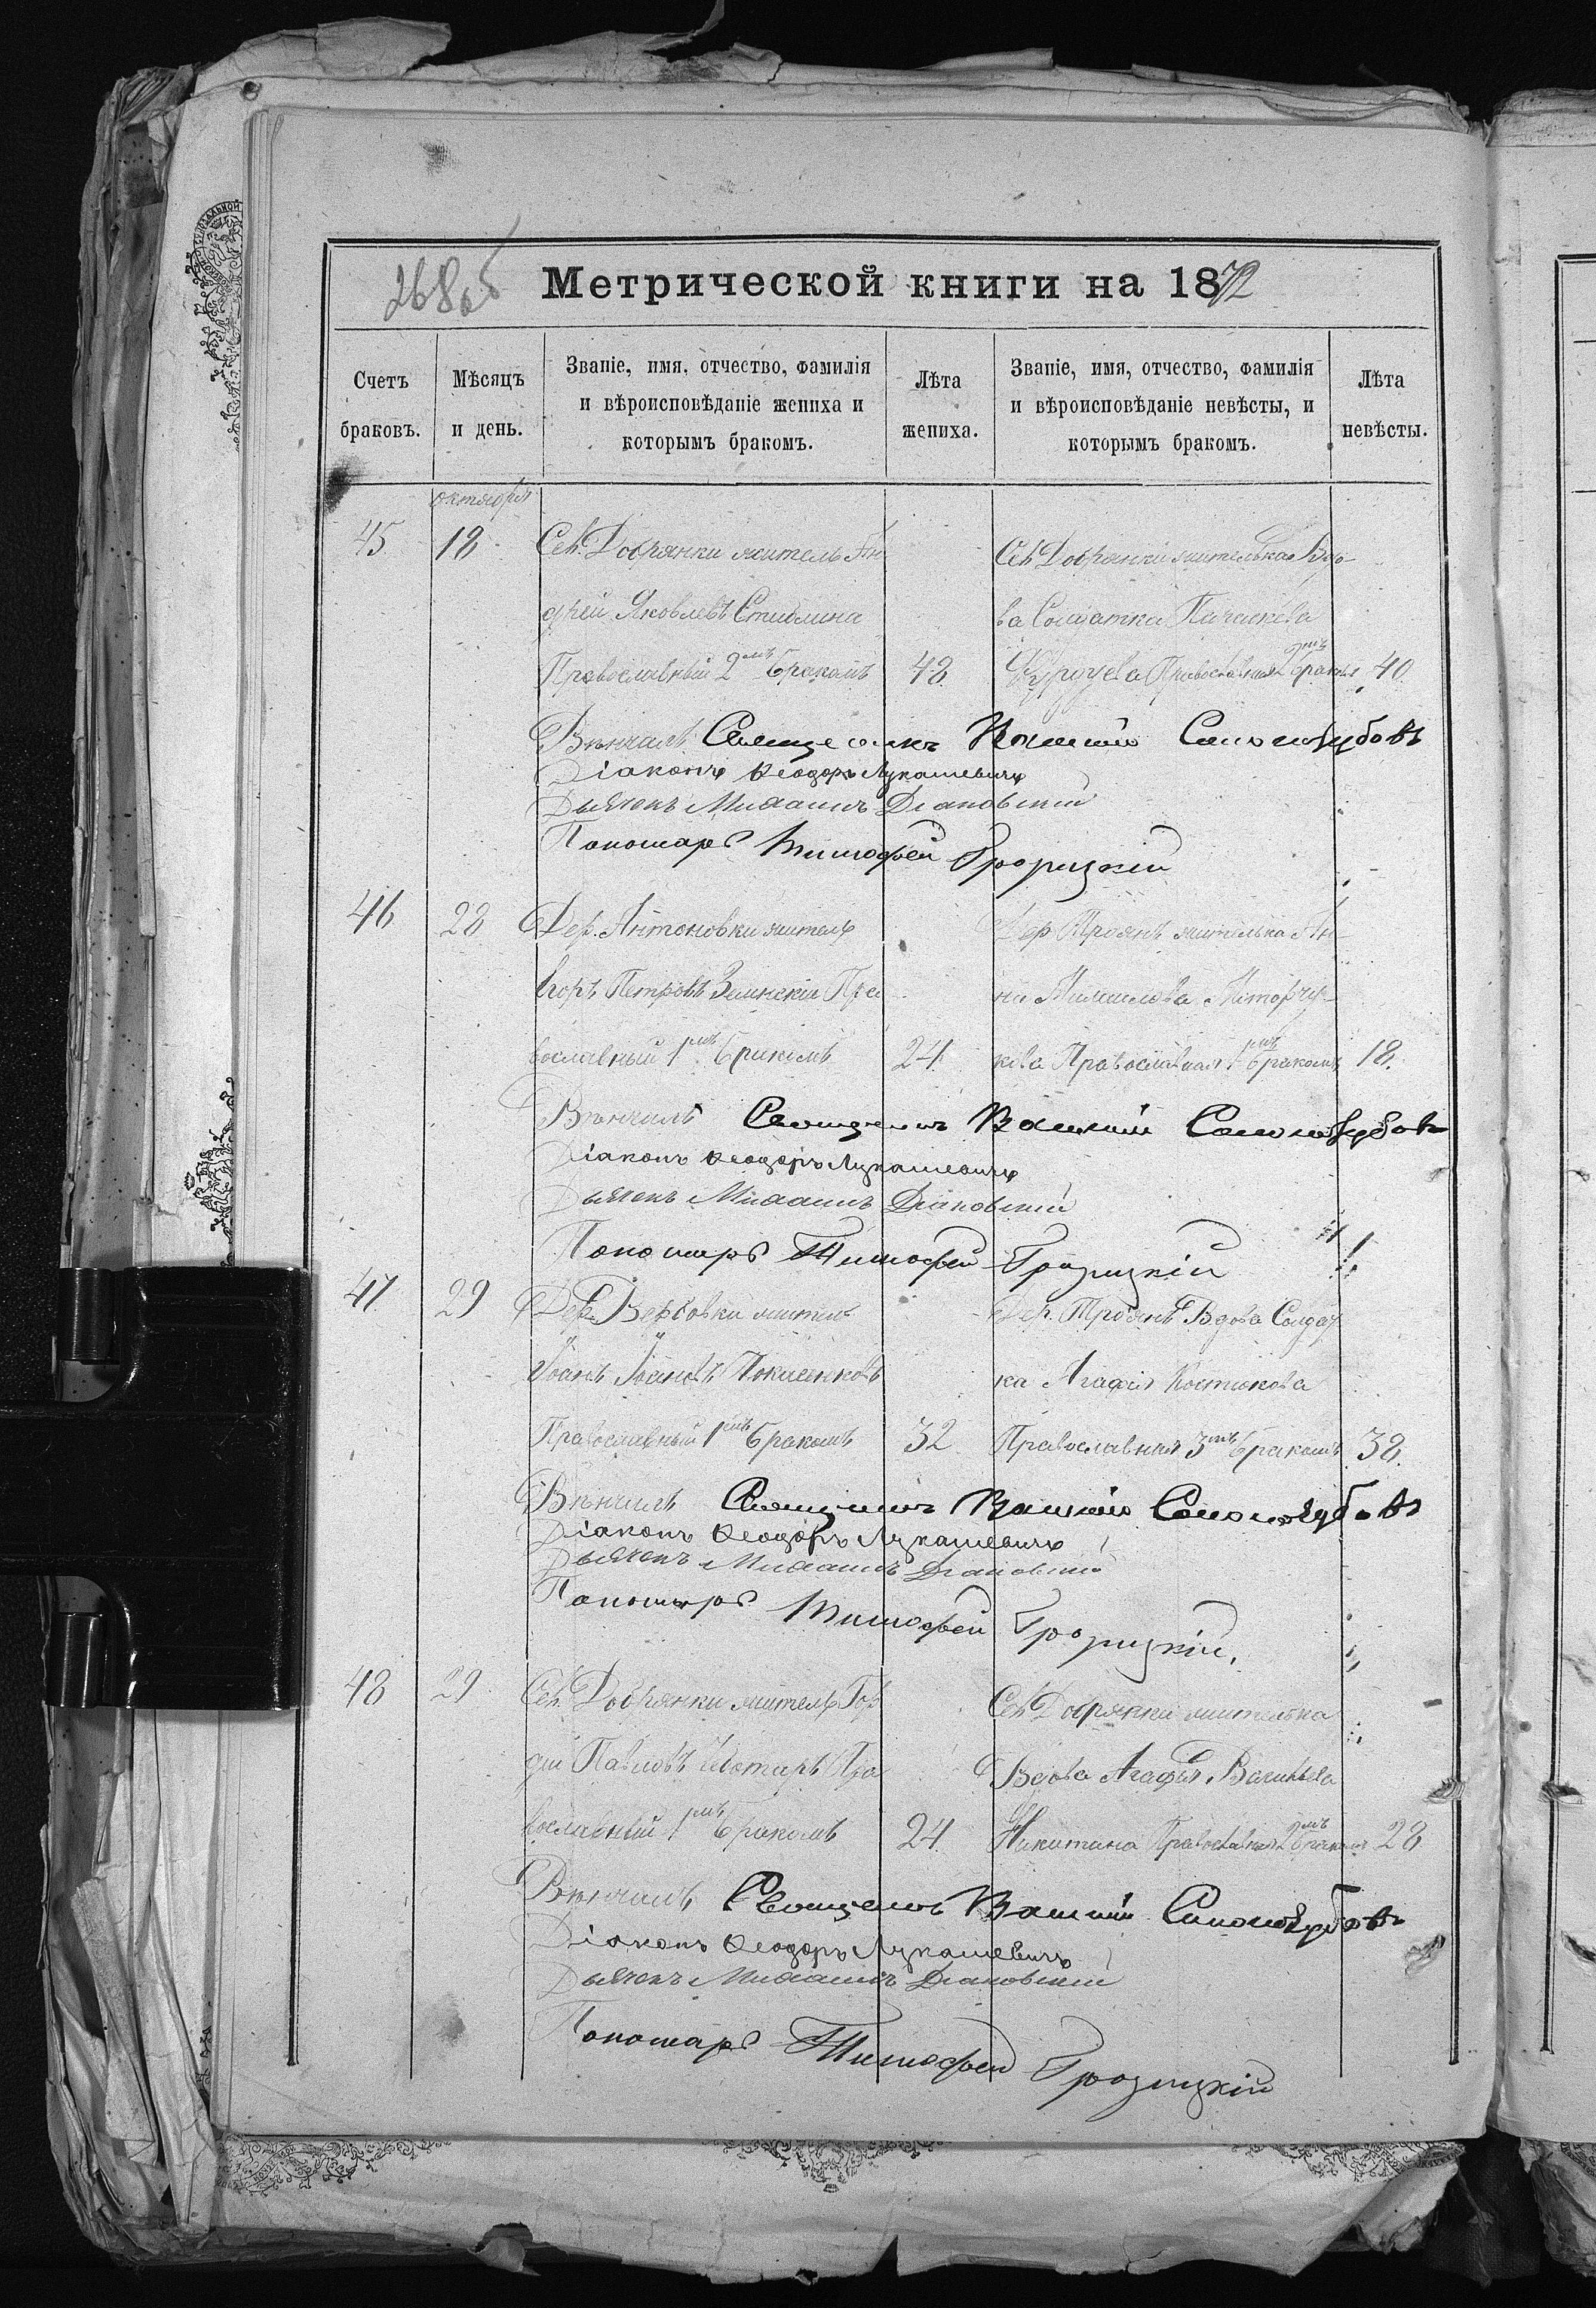 268 об
Метрической книги на 1872
Счетъ браковъ.
Мѣсяцъ и день.
Званіе, имя, отчество, фамилія и вѣроисповѣданіе жениха и которымъ бракомъ.
Лѣта жениха.
Званіе, имя, отчество, фамилія и вѣроисповѣданіе невѣсты, и которымъ бракомъ.
Лѣта невѣсты.
Октября
45 18 Сел. Добрянки житель Ан
дрей Яковлевъ
Православный 2мъ бракомъ 48
Сел. Добрянки жителька Вдо-
ва Солдатка
Православная 2мъ бракомъ 40
Вѣнчалъ Священникъ Василій
Діаконъ Ѳеодоръ Лукашевичъ
Дьячекъ Михаилъ Діаковскій
Пономарь Тимофей Гродзицкій
46 28 Дер. Антоновки житель
Егоръ Петровъ Зелинскій Пра
вославный 1мъ бракомъ 24
Дер. Троянъ жителька Ан-
на
кова Православная 1мъ бракомъ 18.
Вѣнчалъ Священникъ Василій
Діаконъ Ѳеодоръ Лукашевичъ
Дьячекъ Михаилъ Діаковскій
Пономарь Тимофей Гродзицкій
47 29 Дер. Вербовки житель
Іоанъ Іоановъ
Православный 1мъ бракомъ 32
Дер. Троянъ Вдова Солдат
ка Агафія Костюкова
Православная 3мъ бракомъ 38.
Вѣнчалъ Священникъ Василій
Діаконъ Ѳеодоръ Лукашевичъ
Дьячекъ Михаилъ Діаковскій
Пономарь Тимофей Гродзицкій.
48 29 Сел. Добрянки житель Гор
дій Павловъ Пра
вославный 1мъ бракомъ 24
Сел. Добрянки жителька
Вдова Агафія
Никитина Православная 2мъ бракомъ 28
Вѣнчалъ Священникъ Василій
Діаконъ Ѳеодоръ Лукашевичъ
Дьячекъ Михаилъ Діаковскій
Пономарь Тимофей Гродзицкій